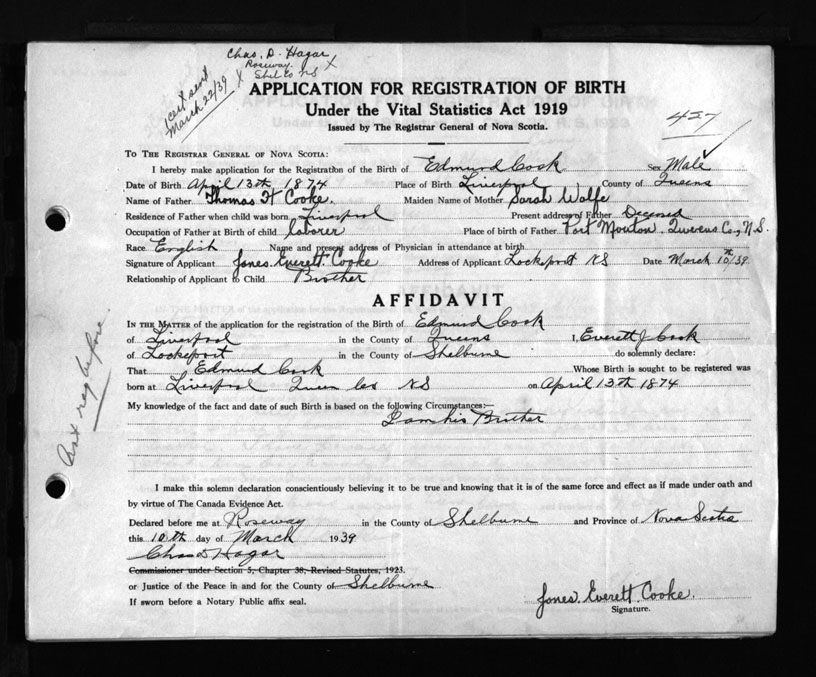 Chas. D. Hagar
Roseway
Shel Co NS
X X
cert sent
March 22/39
APPLICATION FOR REGISTRATION OF BIRTH
Under the Vital Statistics Act 1919
Issued by The Registrar General of Nova Scotia.
427
TO THE REGISTRAR GENERAL OF NOVA SCOTIA:
I hereby make application for the Registration of the Birth of Edmund Cook Sex Male
Date of Birth April 13th 1874 Place of Birth Liverpool County of Queens
Name of Father Thomas H Cooke. Maiden Name of Mother Sarah Wolfe
Residence of Father when child was born Liverpool Present address of Father Decesed
Occupation of Father at Birth of child laborer Place of birth of Father Port Mouton, Queens Co, N.S.
Race English Name and present address of Physician in attendance at birth
Signature of Applicant Jones. Everett. Cooke Address of Applicant Lockeport NS Date March 10th/39
Relationship of Applicant to Child Brother
AFFIDAVIT
IN THE MATTER of the application for the registration of the Birth of Edmund Cook
of Liverpool in the County of Queens I, Everett J Cook
of Lockeport in the County of Shelburne do solemnly declare:
That Edmund Cook Whose Birth is sought to be registered was
born at Liverpool Queen Co NS on April 13th 1874
My knowledge of the fact and date of such Birth is based on the following Circumstances:—
I am his Brother
Art reg before.
I make this solemn declaration conscientiously believing it to be true and knowing that it is of the same force and effect as if made under oath and
by virtue of The Canada Evidence Act.
Declared before me at Roseway in the County of Shelburne and Province of Nova Scotia
this 10th day of March 1939
Chas D Hagar
Commissioner under Section 5, Chapter 38, Revised Statutes, 1923.
or Justice of the Peace in and for the County of Shelburne
If sworn before a Notary Public affix seal.
Jones. Everett Cooke.
Signature.